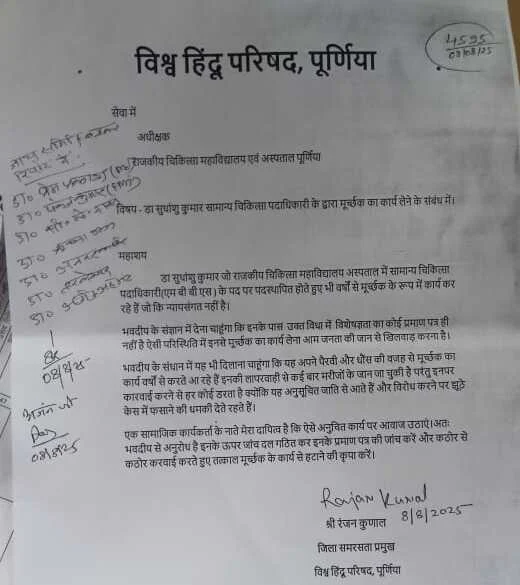 4595
08/08/25
विश्व हिंदू परिषद, पूर्णिया
सेवा में
अधीक्षक
राजकीय चिकित्सा महाविद्यालय एवं अस्पताल पूर्णिया
विषय - डा सुधांशु कुमार सामान्य चिकित्सा पदाधिकारी के द्वारा मूर्च्छक का कार्य लेने के संबंध में।
महाशय
डा सुधांशु कुमार जो राजकीय चिकित्सा महाविद्यालय अस्पताल में सामान्य चिकित्सा
पदाधिकारी(एम बी बी एस) के पद पर पदस्थापित होते हुए भी वर्षो से मूर्च्छक के रूप में कार्य कर
रहे हैं जो कि न्यायसंगत नहीं है।
भवदीय के संज्ञान में देना चाहूंगा कि इनके पास उक्त विधा में विशेषज्ञता का कोई प्रमाण पत्र ही
नहीं है ऐसी परिस्थिति में इनसे मूर्च्छक का कार्य लेना आम जनता की जान से खिलवाड़ करना है।
भवदीय के संधान में यह भी दिलाना चाहूंगा कि यह अपने पैरवी और धौंस की वजह से मूर्च्छक का
कार्य वर्षों से करते आ रहे हैं इनकी लापरवाही से कई बार मरीजों के जान जा चुकी है परंतु इनपर
कारवाई करने से हर कोई डरता है क्योंकि यह अनुसूचित जाति से आते हैं और विरोध करने पर झूठे
केस में फसाने की धमकी देते रहते हैं।
एक सामाजिक कार्यकर्ता के नाते मेरा दायित्व है कि ऐसे अनुचित कार्य पर आवाज उठाएं।अतः
भवदीय से अनुरोध है इनके ऊपर जांच दल गठित कर इनके प्रमाण पत्र की जांच करें और कठोर से
कठोर करवाई करते हुए तत्काल मूर्च्छक के कार्य से हटाने की कृपा करें।
Rajan Kunal
श्री रंजन कुणाल 8/8/2025
जिला समरसता प्रमुख
विश्व हिंदू परिषद, पूर्णिया
डा०
डा०
डा०
डा०
डा०
डा०
डा०
08/8/25
08/8/25